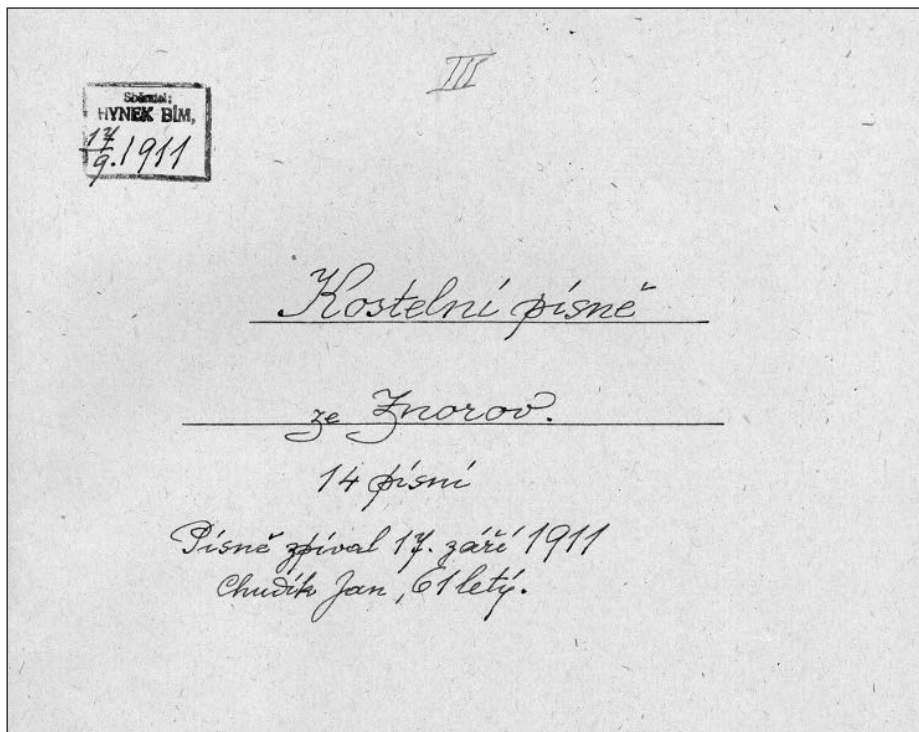 III
Sběratel:
HYNEK BÍM,
17/9. 1911
Kostelní písně
ze Znorov.
14 písní
Písně zpíval 17. září 1911
Chudík Jan, 61 letý.